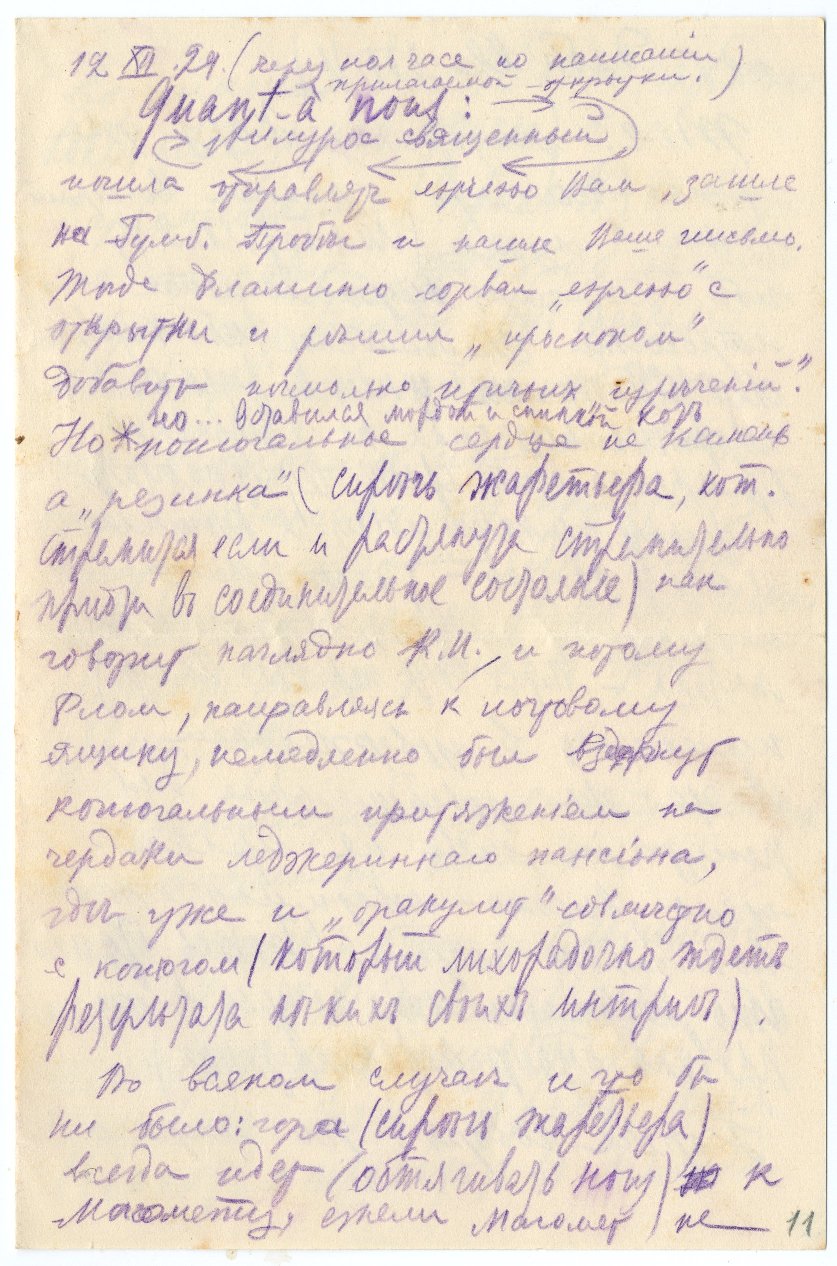 12 XII. 29. (через пол часа по написанiи
прилагаемой открытки.)
Quant-à nous:
священный
пошла отправлять Вам, зашла
на Гумб. и нашла Ваше письмо.
Фламинго сорвал с
открытки и решил
добавить несколько птичьих изреченiй."
но... вставился мордой и спинкой
Но конюгальное сердце не камень
а „резинка" (сирѣчь жаретьера, кот.
стремится если и растянута стремительно
придти въ соединительное состоянiе) как
говорит наглядно К.М. и потому
Флам, направляясь к почтовому
ящику, немедленно был вздернут
конюгальным притяженiем на
чердаки пансiона,
гдѣ уже и совместно
с конюгом (который лихорадочно ждетъ
результата своихъ интригъ).
Во всяком случаѣ и что бы
ни было: гора (сирѣчь жаретьера)
всегда идет (обтягивать ногу) к
Магомету, ежели Магомет не
11